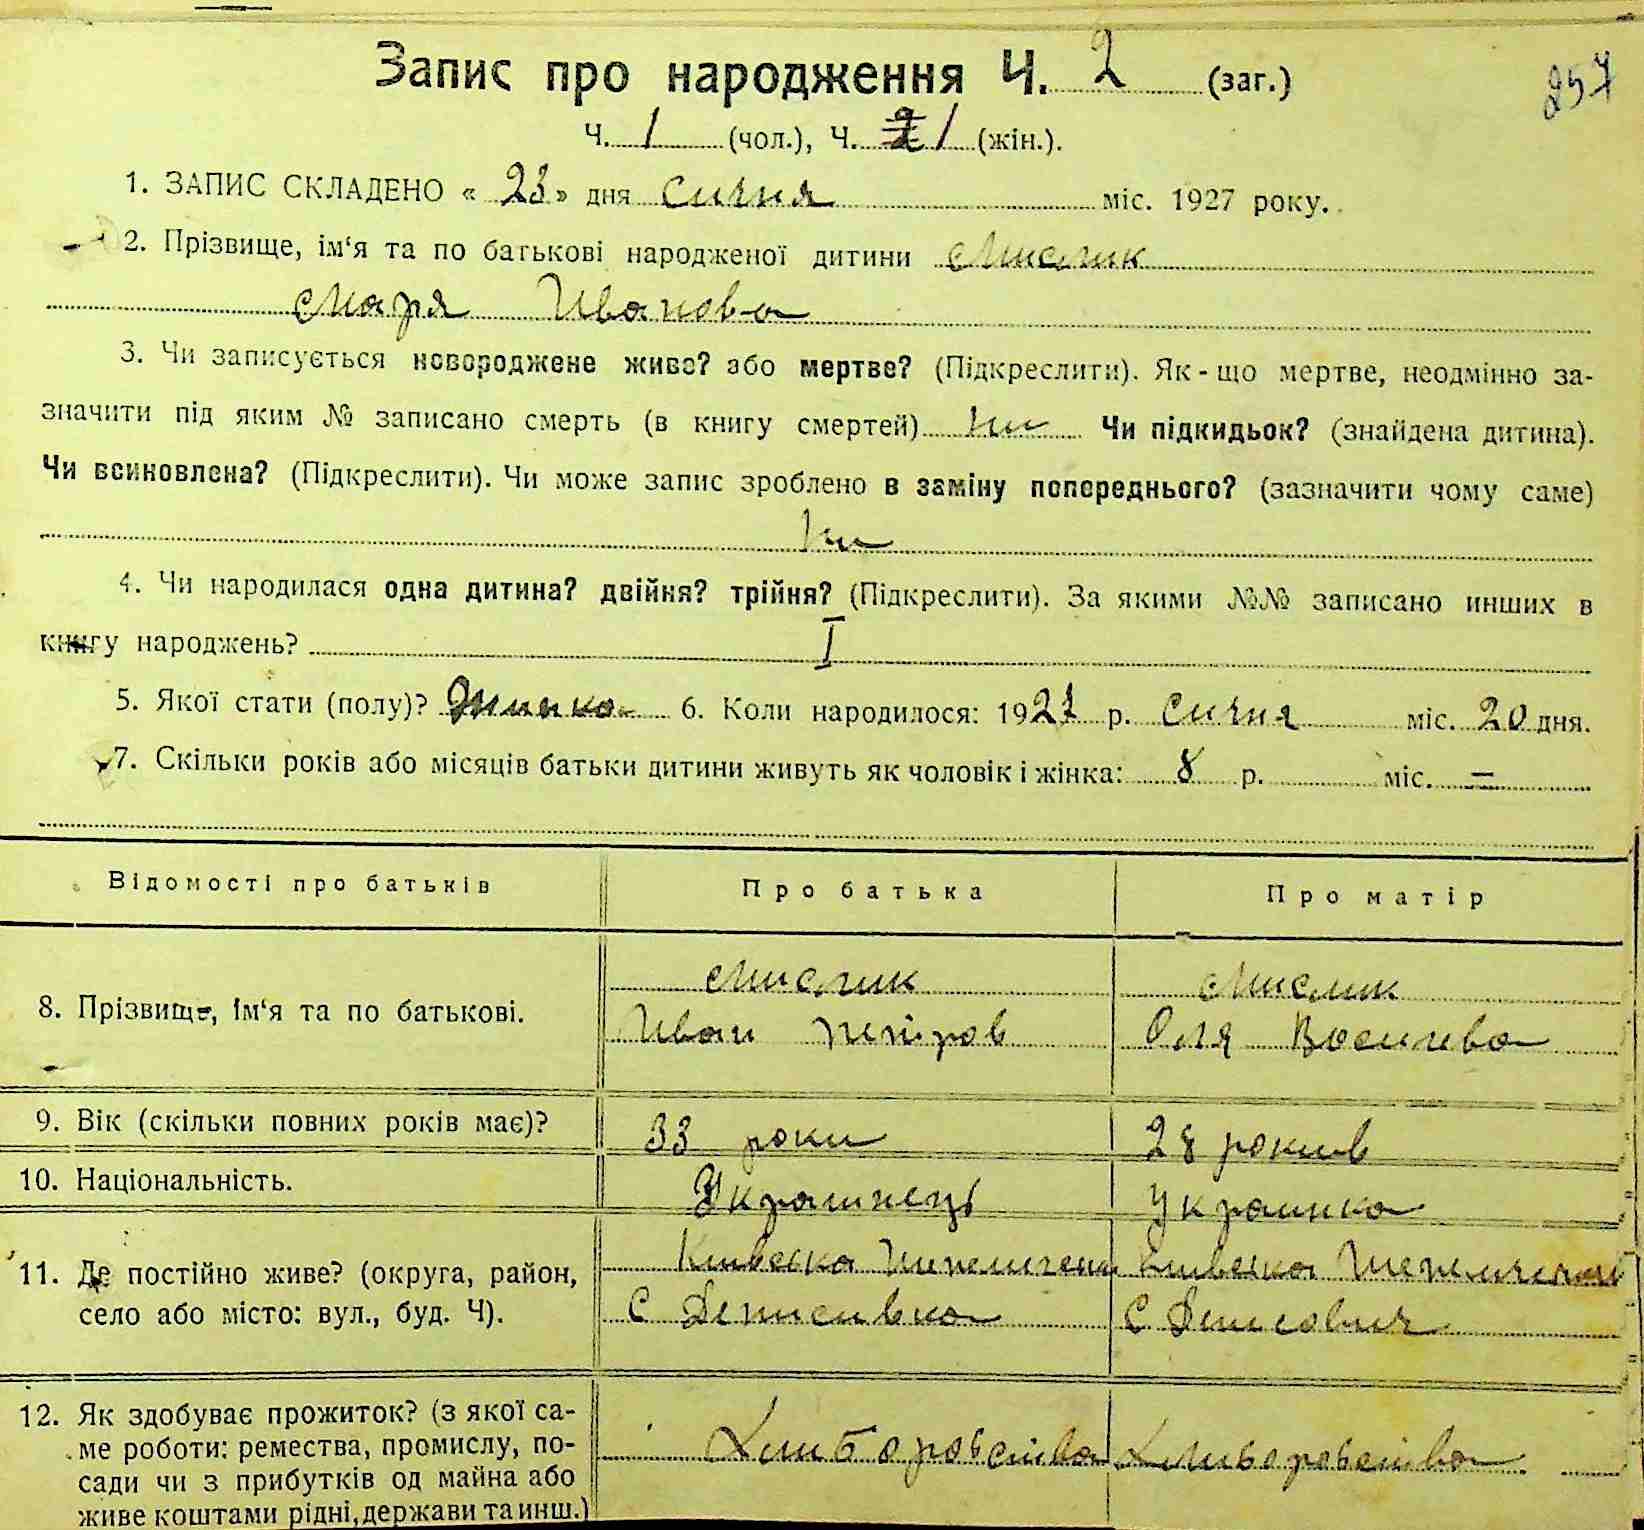 Запис про народження Ч. 2 (заг.)
257
Ч. 1 (чол.), Ч. 1 (жін.).
1. ЗАПИС СКЛАДЕНО « 23 » дня сичня міс. 1927 року.
2. Прізвище, ім‘я та по батькові народженої дитини Мислик
Маря Ивановa
3. Чи записується новороджене живе? або мертве? (Підкреслити). Як-що мертве, неодмінно за-
значити під яким № записано смерть (в книгу смертей) ни Чи підкидьок? (знайдена дитина).
Чи всиновлена? (Підкреслити). Чи може запис зроблено в заміну попереднього? (зазначити чому саме)
ни
4. Чи народилася одна дитина? двійня? трійня? (Підкреслити). За якими №№ записано инших в
книгу народжень? I
5. Якої стати (полу)? 6. Коли народилося: 1927 р. сичня міс. 20 дня.
7. Скільки років або місяців батьки дитини живуть як чоловік і жінка: 8 р. міс. =
Відомості про батьків Про батька Про матір
8. Прізвище, ім‘я та по батькові.
Мислик
Иван Петров
Мислик
Оля Василева
9. Вік (скільки повних років має)? 33 роки 28 рокив
10. Національність. Украинець Украинка
11. Де постійно живе? (округа, район,
село або місто: вул., буд. Ч).
Киивска
С Денисивка
Киивска
С
12. Як здобуває прожиток? (з якої са-
ме роботи: ремества, промислу, по-
сади чи з прибутків од майна або
живе коштами рідні, держави та инш.)
Хлиборобства
Хлиборобства